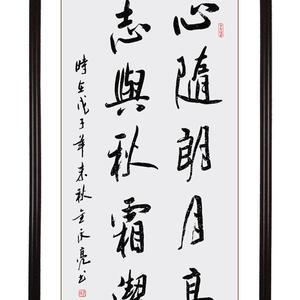 心隨朗月高
志與秋霜潔
時在戊子年末秋